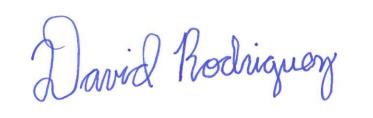 David Rodriguez